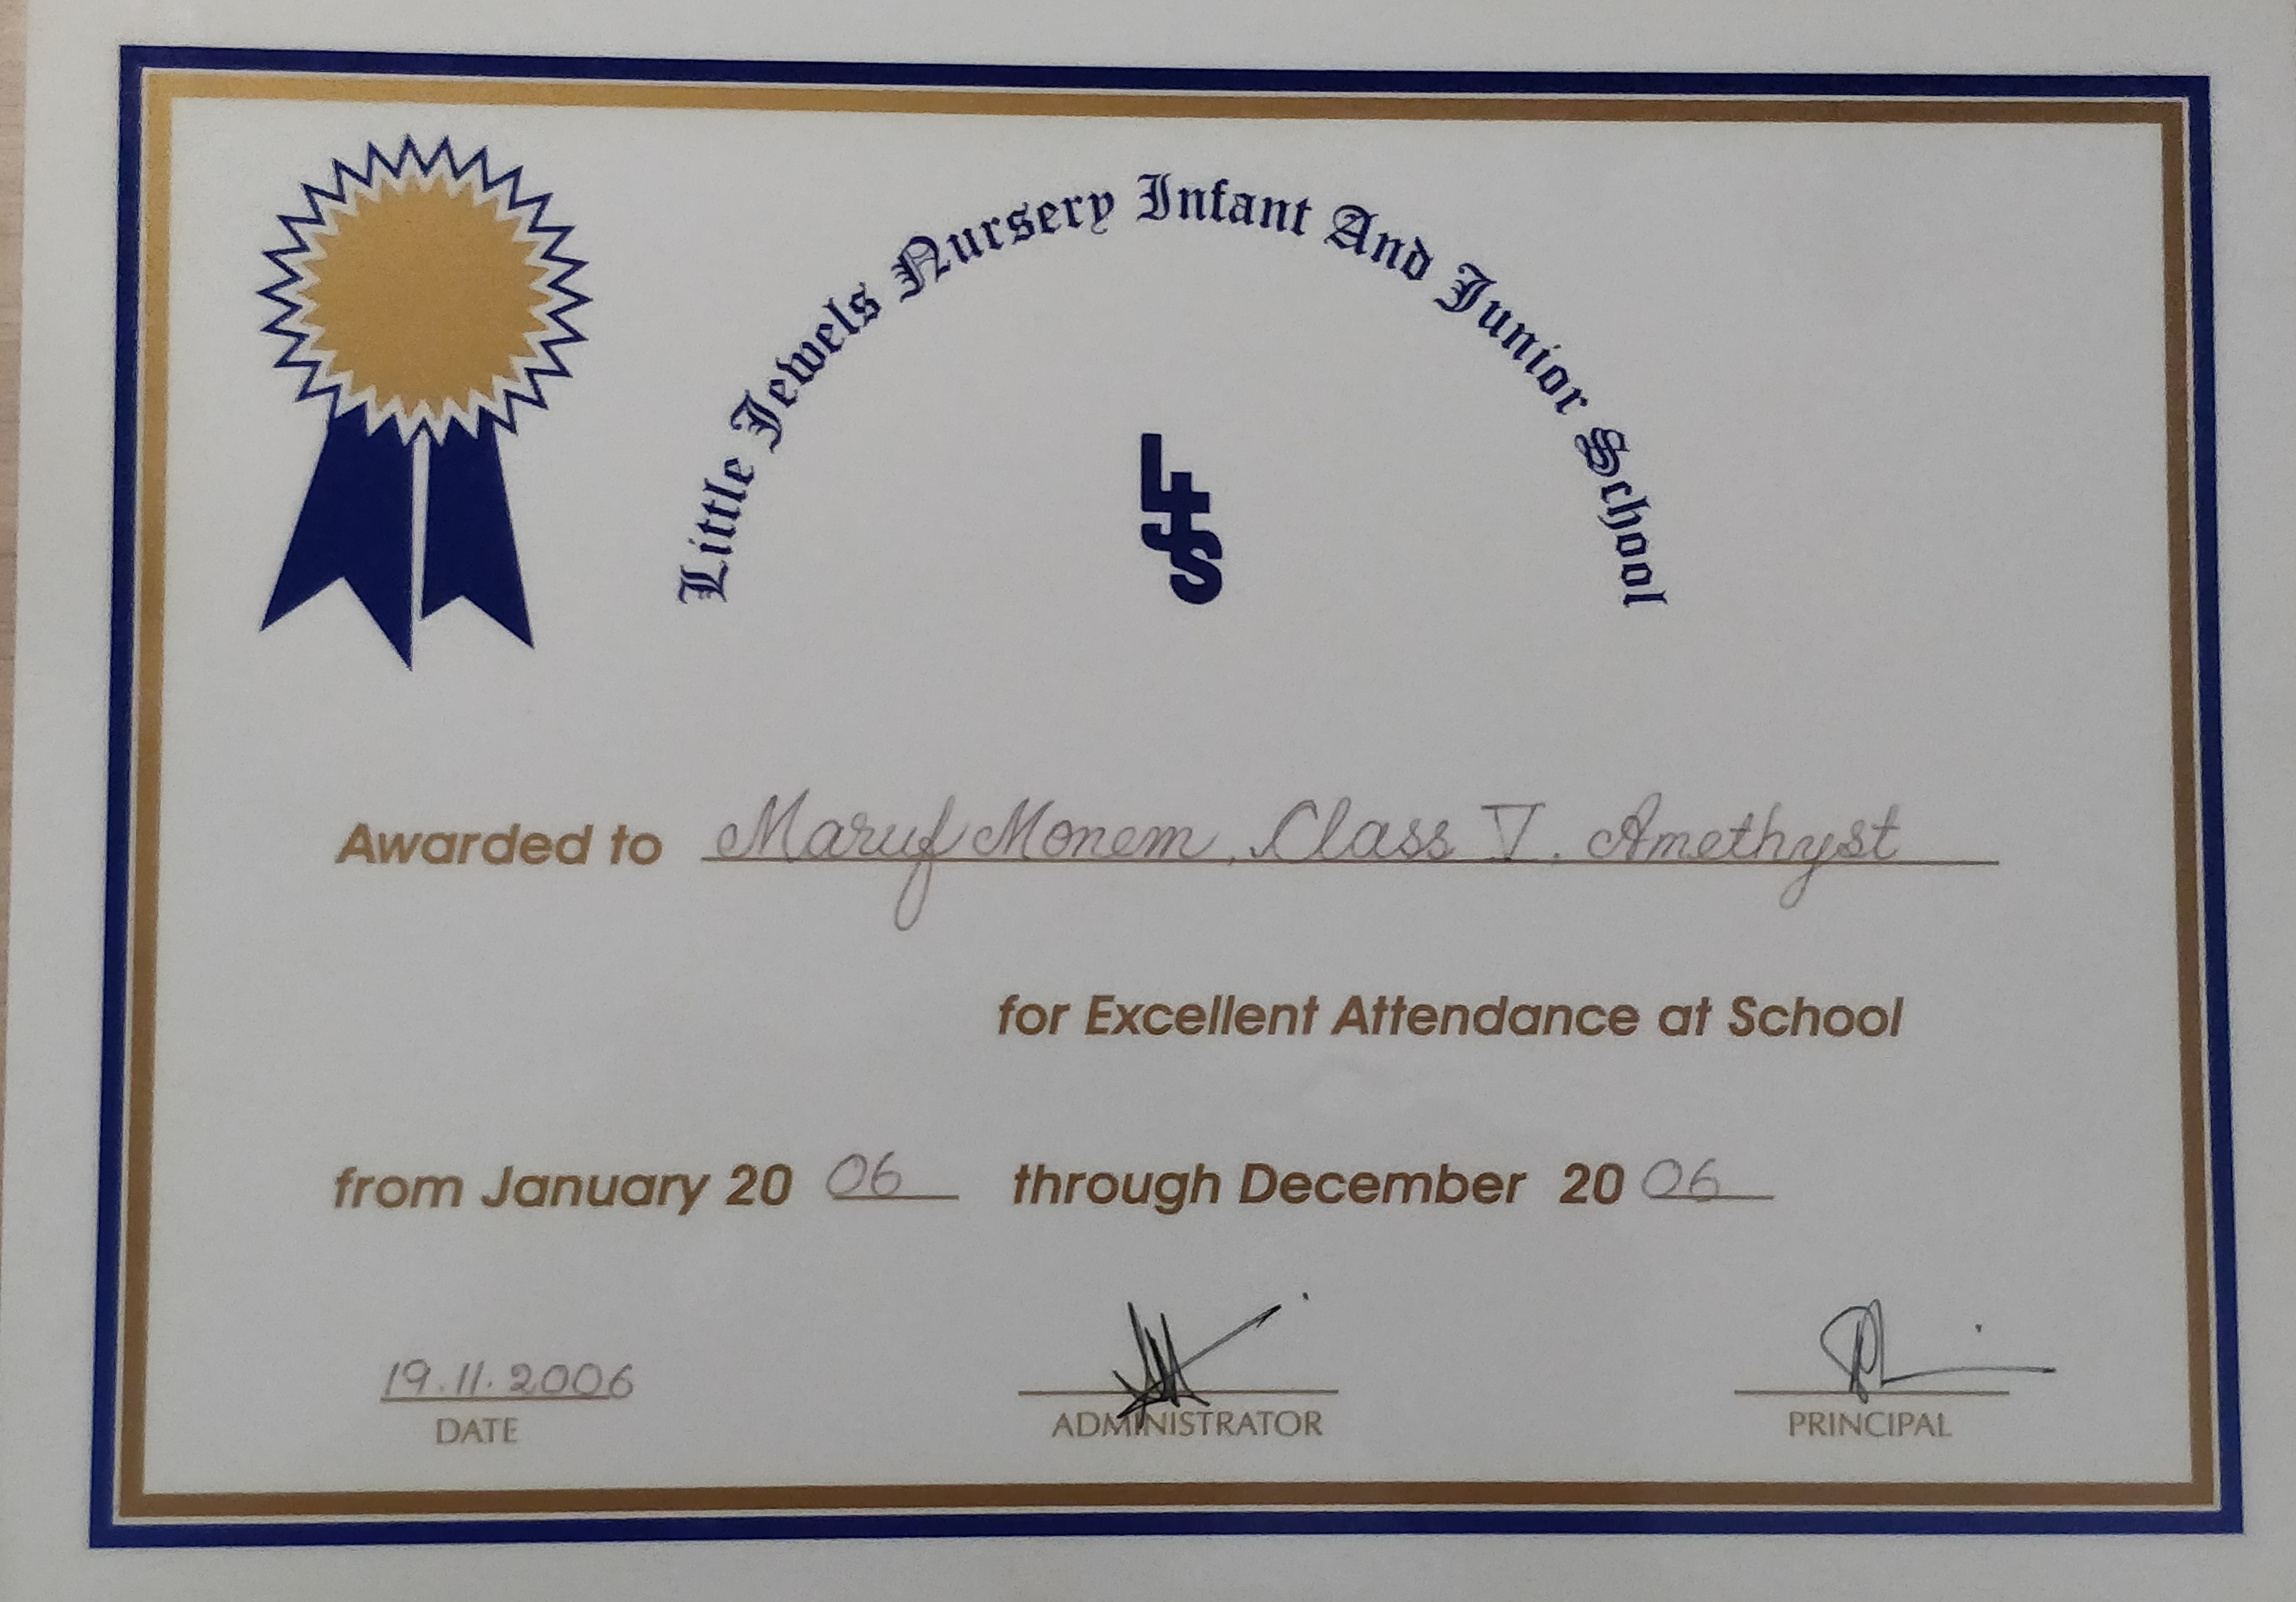 Little Jewels Nursery Infant And Junior School
LJS
Awarded to Maruf Monem, Class V. Amethyst
for Excellent Attendance at School
from January 20 06 through December 20 06
19.11.2006
DATE ADMINISTRATOR PRINCIPAL